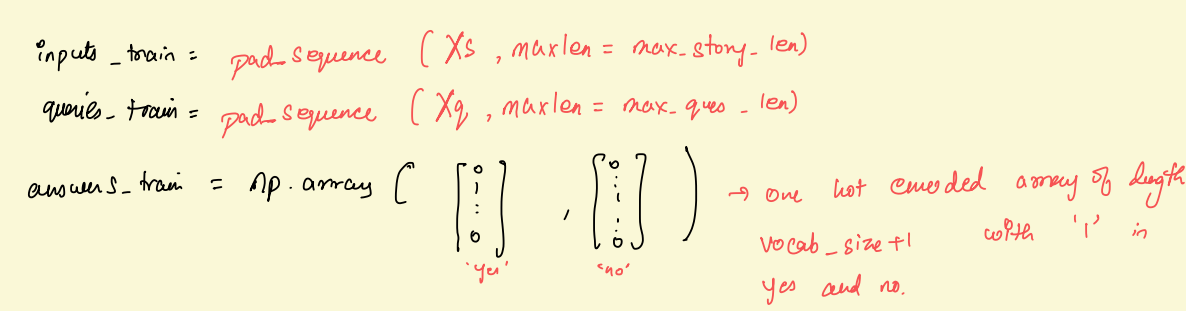 inputs_train = pad_sequence ( Xs , maxlen = max_story_len)
queries_train = pad_sequence ( Xq , maxlen = max_ques_len)
answers_train = np.array ( [ 0 1 : : 0 ] , [ 0 : 1 : 0 ] ) → one hot encoded array of length
'yes' 'no' vocab_size+1 with '1' in
yes and no.